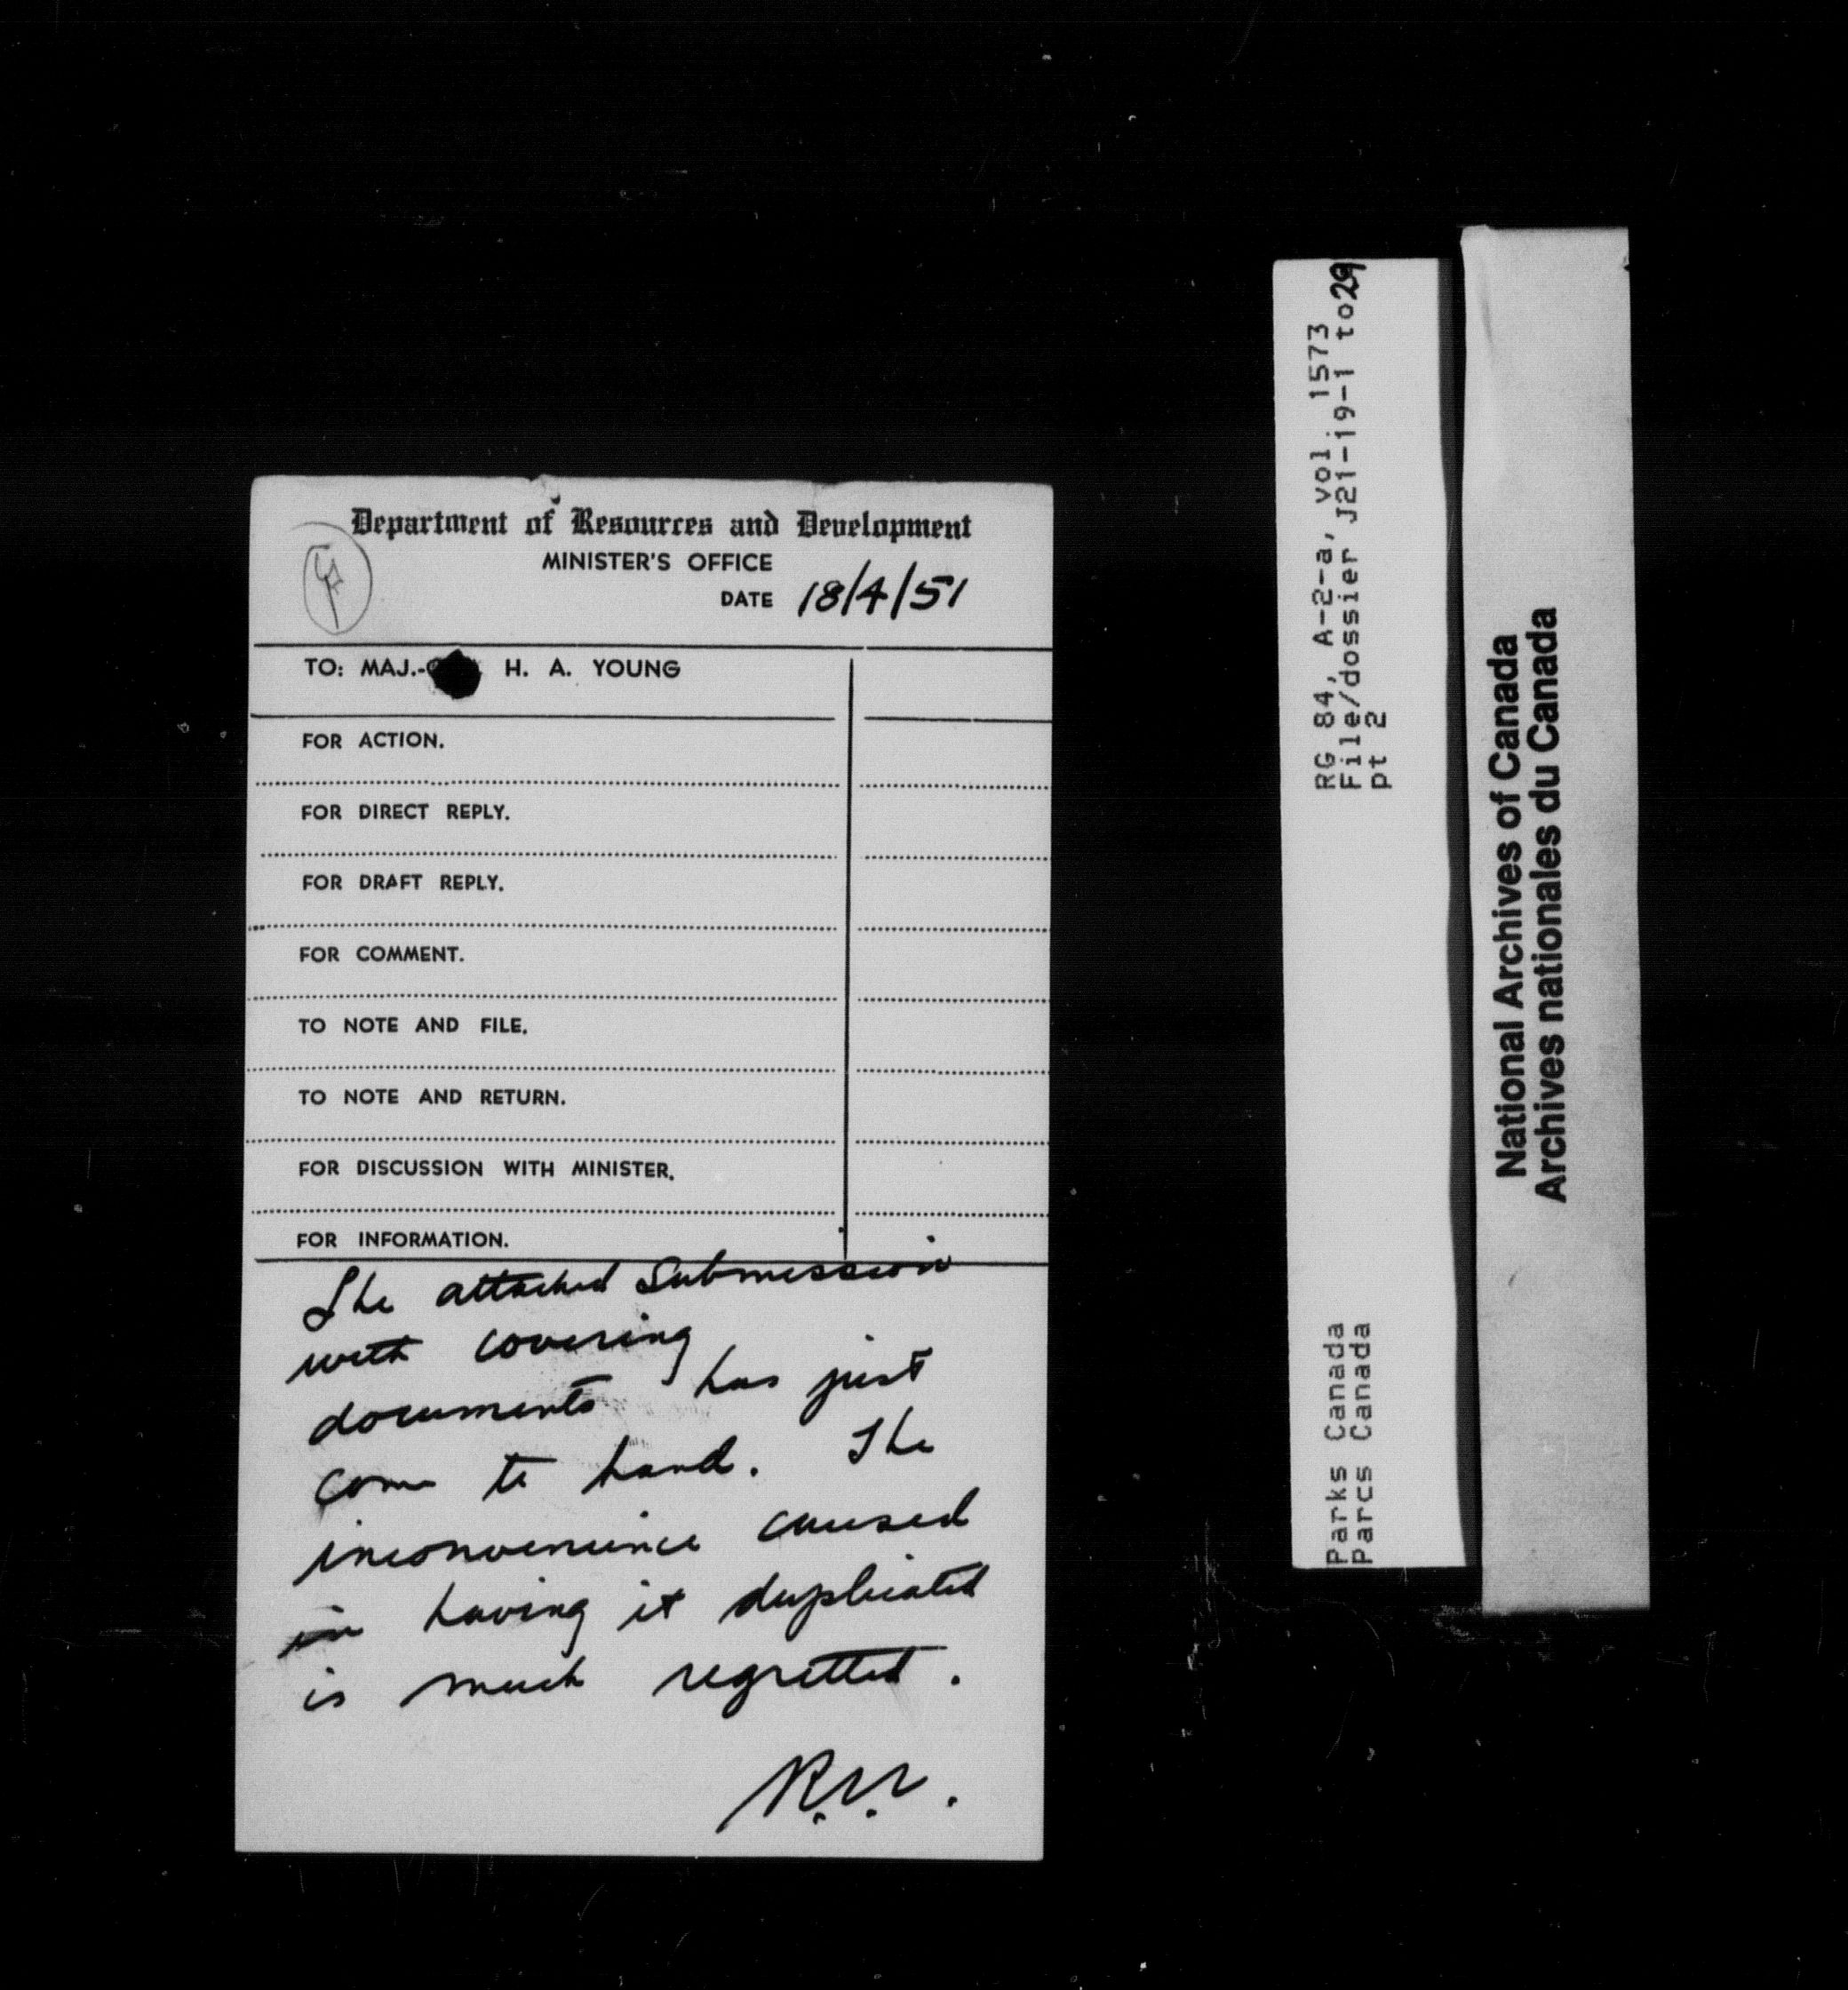 Department of Resources and Development
MINISTER'S OFFICE
DATE 18/4/51
TO: MAJ.- H. A. YOUNG
FOR ACTION.
FOR DIRECT REPLY.
FOR DRAFT REPLY.
FOR COMMENT.
TO NOTE AND FILE.
TO NOTE AND RETURN.
FOR DISCUSSION WITH MINISTER.
FOR INFORMATION.
The attached Submission
with covering
documents has just
come to hand. The
inconvenience caused
in having it duplicated
is much regretted.
RG 84, A-2-a, vol. 1573
File/dossier J21-19-1 to 29
pt 2
Parks Canada
Parcs Canada
National Archives of Canada
Archives nationales du Canada